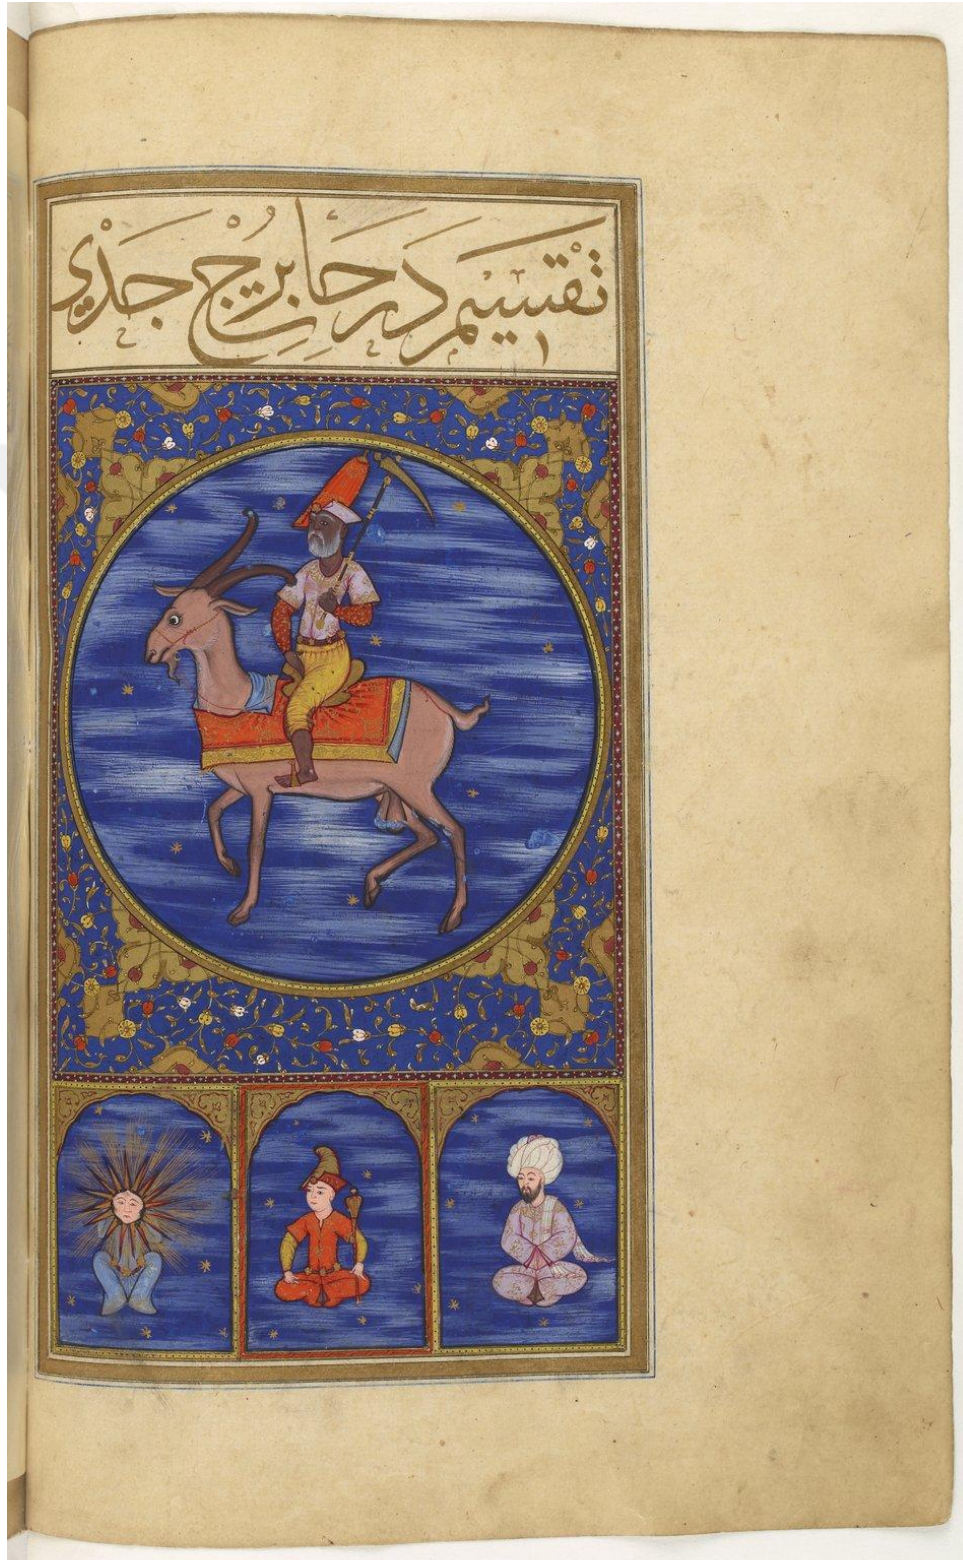 تقسيم درجات برج جدي